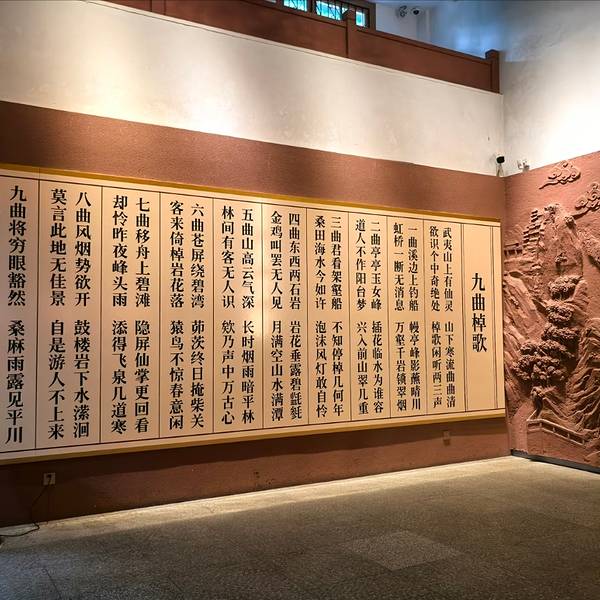 九曲棹歌
武夷山上有仙灵 山下寒流曲曲清
欲识个中奇绝处 棹歌闲听两三声
一曲溪边上钓船 幔亭峰影蘸晴川
虹桥一断无消息 万壑千岩锁翠烟
二曲亭亭玉女峰 插花临水为谁容
道人不作阳台梦 兴入前山翠几重
三曲君看架壑船 不知停棹几何年
桑田海水今如许 泡沫风灯敢自怜
四曲东西两石岩 岩花垂露碧
金鸡叫罢无人见 月满空山水满潭
五曲山高云气深 长时烟雨暗平林
林间有客无人识 欸乃声中万古心
六曲苍屏绕碧湾 茆茨终日掩柴关
客来倚棹岩花落 猿鸟不惊春意闲
七曲移舟上碧滩 隐屏仙掌更回看
却怜昨夜峰头雨 添得飞泉几道寒
八曲风烟势欲开 鼓楼岩下水潆洄
莫言此地无佳景 自是游人不上来
九曲将穷眼豁然 桑麻雨露见平川